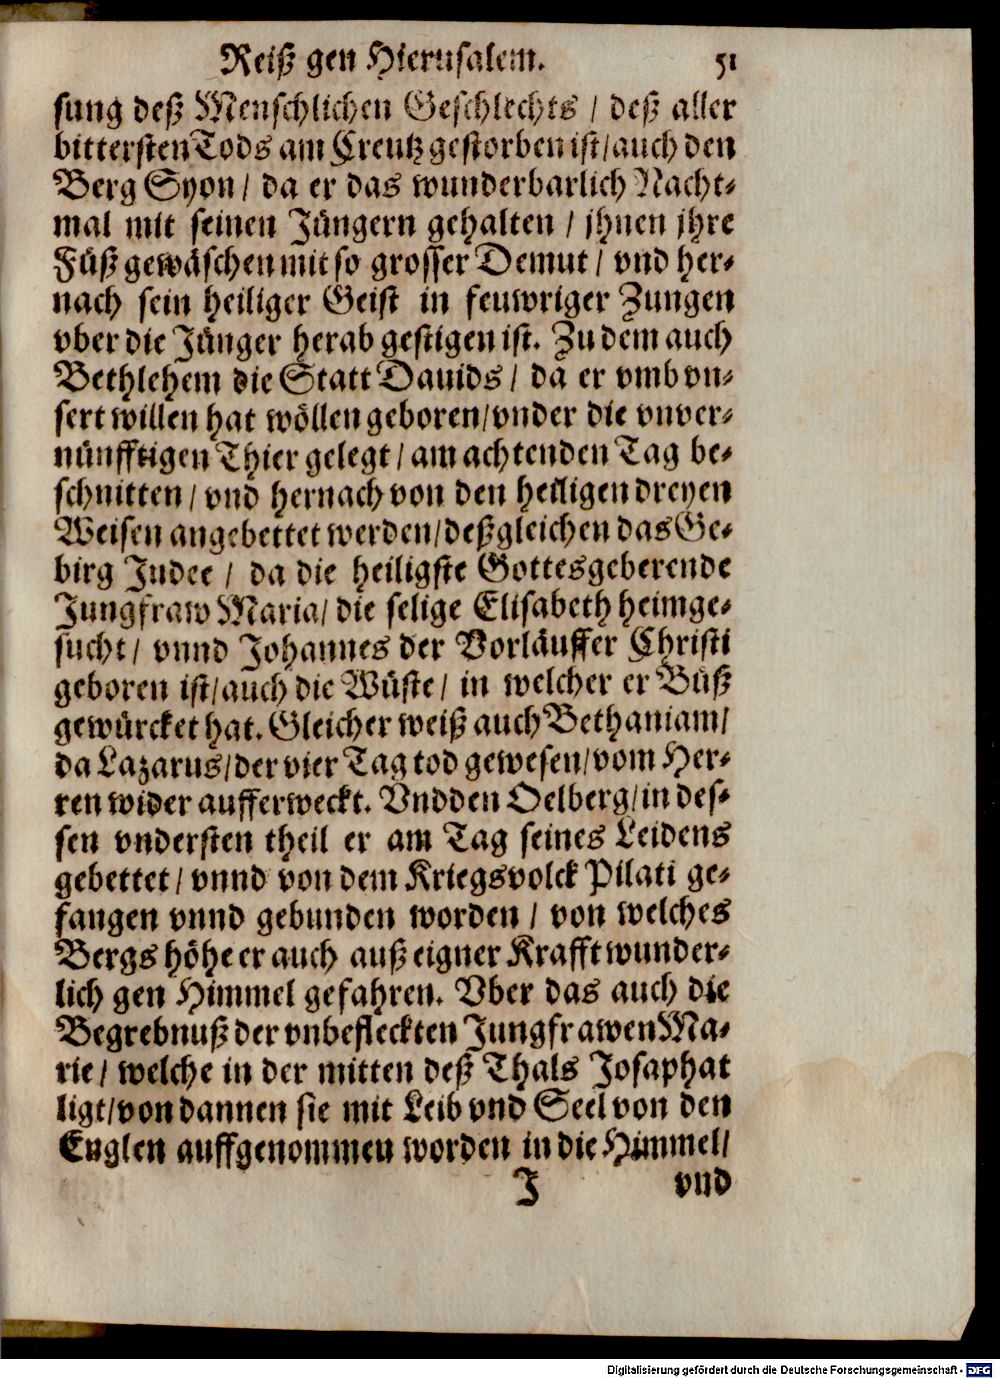 Reiß gen Hierusalem. 51
sung deß Menschlichen Geschlechts / deß aller
bittersten Tods am Creutz gestorben ist/auch den
Berg Syon/ da er das wunderbarlich Nacht-
mal mit seinen Jüngern gehalten / jhnen jhre
Füß gewäschen mit so grosser Demut / vnd her-
nach sein heiliger Geist in feuwriger Zungen
vber die Jünger herab gestigen ist. Zu dem auch
Bethlehem die Statt Dauids / da er vmb vn-
sert willen hat wöllen geboren/vnder die vnver-
nünfftigen Thier gelegt / am achtenden Tag be-
schnitten / vnd hernach von den heiligen dreyen
Weisen angebettet werden/deßgleichen das Ge-
birg Judee / da die heiligste Gottesgeberende
Jungfraw Maria/ die selige Elisabeth heimge-
sucht / vnnd Johannes der Vorläuffer Christi
geboren ist/auch die Wüste / in welcher er Büß
gewürcket hat. Gleicher weiß auch Bethaniam/
da Lazarus/der vier Tag tod gewesen/vom Her-
ren wider aufferweckt. Vnd den Oelberg/in des-
sen vndersten theil er am Tag seines Leidens
gebettet / vnnd von dem Kriegsvolck Pilati ge-
fangen vnnd gebunden worden / von welches
Bergs höhe er auch auß eigner Krafft wunder-
lich gen Himmel gefahren. Vber das auch die
Begrebnuß der vnbefleckten Jungfrawen Ma-
rie / welche in der mitten deß Thals Josaphat
ligt/von dannen sie mit Leib vnd Seel von den
Englen auffgenommen worden in die Himmel/
J vnd
Digitalisierung gefördert durch die Deutsche Forschungsgemeinschaft - DFG